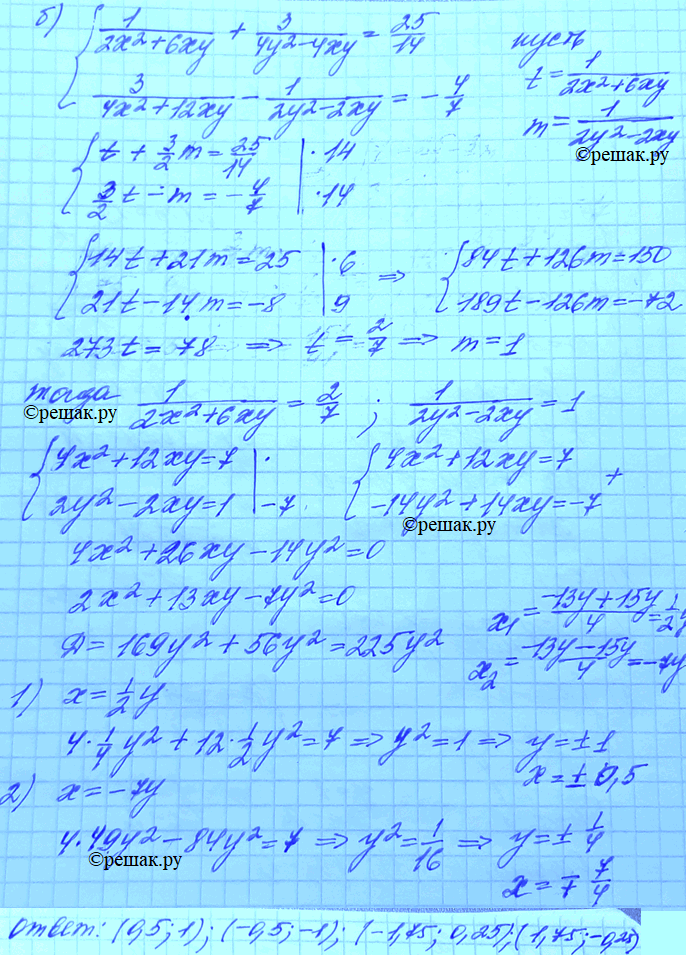 б) { 1/(2x²+6xy) + 3/(4y²-4xy) = 25/14
пусть
t = 1/(2x²+6xy)
3/(4x²+12xy) - 1/(2y²-2xy) = -4/7
m = 1/(2y²-2xy)
©решак.ру
{ t + 3/2 m = 25/14 | ·14
3/2 t - m = -4/7 | ·14
{ 14t + 21m = 25 | ·6 => { 84t + 126m = 150
21t - 14m = -8 | 9 189t - 126m = -72
273t = 78 => t = 2/7 => m = 1
тогда 1/(2x²+6xy) = 2/7 ; 1/(2y²-2xy) = 1
©решак.ру
{ 4x² + 12xy = 7 | · { 4x² + 12xy = 7 +
2y² - 2xy = 1 | -7 -14y² + 14xy = -7
©решак.ру
4x² + 26xy - 14y² = 0
2x² + 13xy - 7y² = 0
x₁ = (-13y + 15y)/4 = 1/2 y
Д = 169y² + 56y² = 225y²
x₂ = (-13y - 15y)/4 = -7y
1) x = 1/2 y
4 · 1/4 y² + 12 · 1/2 y² = 7 => y² = 1 => y = ±1
x = ± 0,5
2) x = -7y
4 · 49y² - 84y² = 7 => y² = 1/16 => y = ± 1/4
©решак.ру
x = ∓ 7/4
Ответ: (0,5; 1); (-0,5; -1); (-1,75; 0,25); (1,75; -0,25)